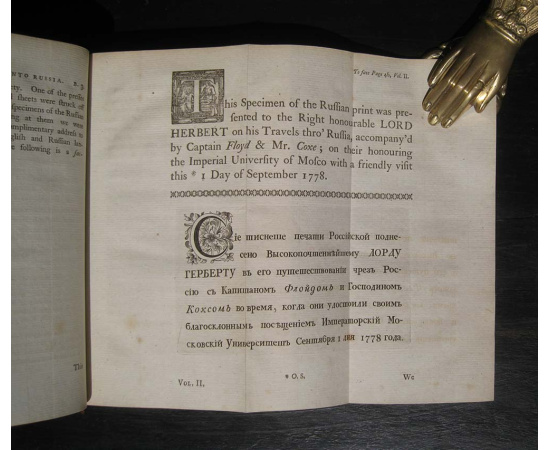 INTO RUSSIA. B. 3.
One of the presses
sheets were struck off
Specimens of the Russian
at them we were
complimentary address to
English and Russian
following is a
This
To face Page 46, Vol. II.
This Specimen of the Russian print was pre-
sented to the Right honourable LORD
HERBERT on his Travels thro' Russia, accompany'd
by Captain Floyd & Mr. Coxe; on their honouring
the Imperial University of Mosco with a friendly visit
this * 1 Day of September 1778.
Сіе тисненіе печати Россійской подне-
сено Высокопочтеннѣйшему ЛОРДУ
ГЕРБЕРТУ въ его путешествованіи чрезъ Рос-
сію съ Капитаномъ Флойдомъ и Господиномъ
Коксомъ во время, когда они удостоили своимъ
благосклоннымъ посѣщеніемъ Императорскій Мо-
сковскій Университетъ Сентября 1 дня 1778 года.
* O. S.
VOL. II.
We